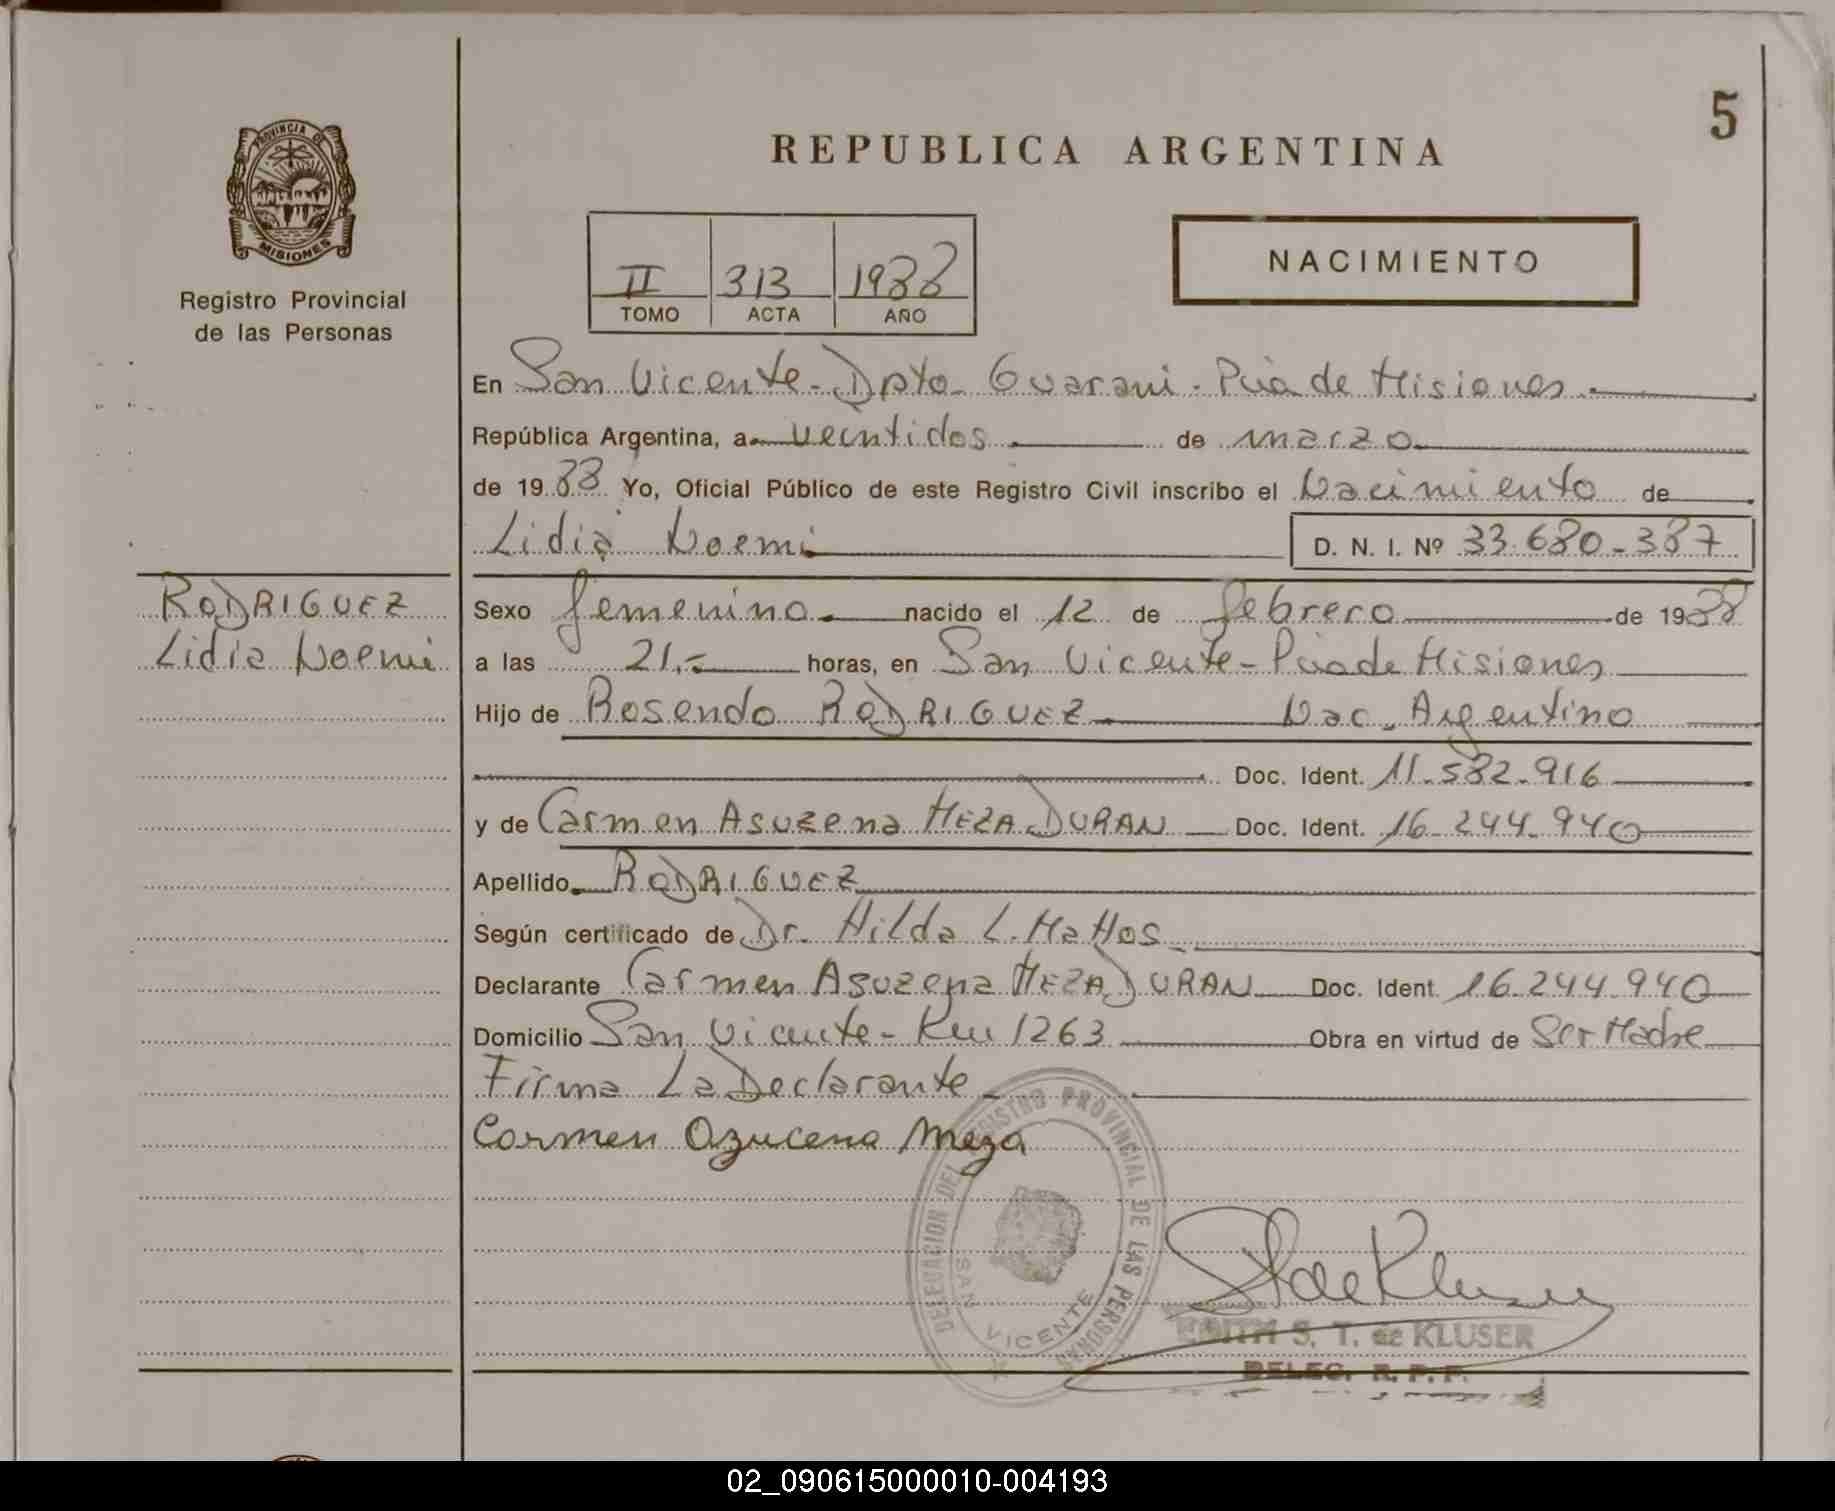 5
PROVINCIA DE
MISIONES
Registro Provincial
de las Personas
REPUBLICA ARGENTINA
II 313 1988
TOMO ACTA AÑO
NACIMIENTO
En San Vicente - Dpto - Guarani - Pcia de Misiones.
República Argentina, a veintidos de marzo
de 1988 Yo, Oficial Público de este Registro Civil inscribo el Nacimiento de
Lidia Noemi D. N. I. Nº 33.680-387
RODRIGUEZ
Lidia Noemi
Sexo femenino nacido el 12 de febrero de 1988
a las 21.- horas, en San Vicente - Pcia de Misiones
Hijo de Rosendo RODRIGUEZ Nac. Argentino
Doc. Ident. 11-582-916
y de Carmen Asuzena MEZA DURAN Doc. Ident. 16-244-940
Apellido RODRIGUEZ
Según certificado de Dr. Hilda L. Mattos
Declarante Carmen Asuzena MEZA DURAN Doc. Ident. 16.244.940
Domicilio San Vicente - Km 1263 Obra en virtud de Ser Madre
Firma La Declarante
Carmen Azucena Meza
DELEGACION DEL REGISTRO PROVINCIAL DE LAS PERSONAS
SAN VICENTE
EDITH S. T. de KLUSER
DELEG. R. P. P.
02_090615000010-004193